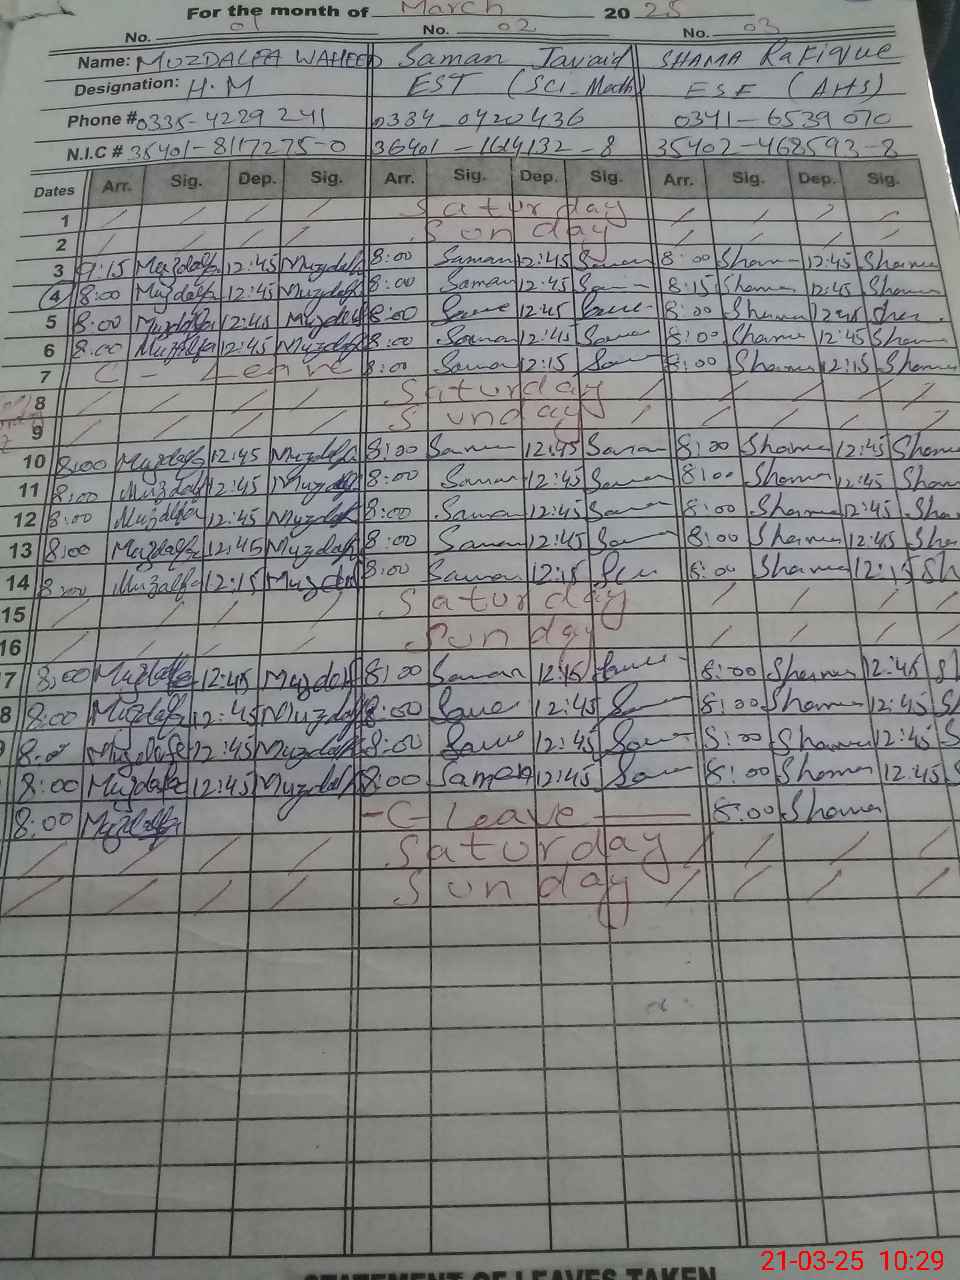 For the month of March 20 25
No. 01 No. 02 No. 03
Name: MUZDALFA WAHEED Saman Javaid SHAMA Rafique
Designation: H.M EST (Sci-Math) ESE (AHS)
Phone # 0335-4229 241 0334 0420436 0341-6539070
N.I.C # 35401-8117275-0 36401-1614132-8 35402-468593-8
Dates Arr. Sig. Dep. Sig. Arr. Sig. Dep. Sig. Arr. Sig. Dep. Sig.
1 / / / / Saturday / / / /
2 / / / / Sunday / / / /
3 9:15 Muzdalfa 12:45 Muzdalfa 8:00 Saman 12:45 Saman 8:00 Shama 12:45 Shama
4 8:00 Muzdalfa 12:45 Muzdalfa 8:00 Saman 12:45 Saman 8:15 Shama 12:45 Shama
5 8:00 Muzdalfa 12:45 Muzdalfa 8:00 Saman 12:45 Saman 8:00 Shama 12:45 Shama
6 8:00 Muzdalfa 12:45 Muzdalfa 8:00 Saman 12:45 Saman 8:00 Shama 12:45 Shama
7 C - Leave 8:00 Saman 12:15 Saman 8:00 Shama 12:15 Shama
8 / / / / Saturday / / / /
9 / / / / Sunday / / / /
10 8:00 Muzdalfa 12:45 Muzdalfa 8:00 Saman 12:45 Saman 8:00 Shama 12:45 Shama
11 8:00 Muzdalfa 12:45 Muzdalfa 8:00 Saman 12:45 Saman 8:00 Shama 12:45 Sham
12 8:00 Muzdalfa 12:45 Muzdalfa 8:00 Saman 12:45 Saman 8:00 Shama 12:45 Sha
13 8:00 Muzdalfa 12:45 Muzdalfa 8:00 Saman 12:45 Saman 8:00 Shama 12:45 Sha
14 8:00 Muzdalfa 12:15 Muzdalfa 8:00 Saman 12:15 Saman 8:00 Shama 12:15 Sh
15 / / / / Saturday / / / /
16 / / / / Sunday / / / /
7 8:00 Muzdalfa 12:45 Muzdalfa 8:00 Saman 12:45 Saman 8:00 Shama 12:45 S
8 8:00 Muzdalfa 12:45 Muzdalfa 8:00 Saman 12:45 Saman 8:00 Shama 12:45 S
8:00 Muzdalfa 12:45 Muzdalfa 8:00 Saman 12:45 Saman 8:00 Shama 12:45 S
8:00 Muzdalfa 12:45 Muzdalfa 8:00 Saman 12:45 Saman 8:00 Shama 12:45 S
8:00 Muzdalfa -C-Leave 8:00 Shama
/ / / / Saturday / / / /
/ / / / Sunday / / / /
STATEMENT OF LEAVES TAKEN
21-03-25 10:29